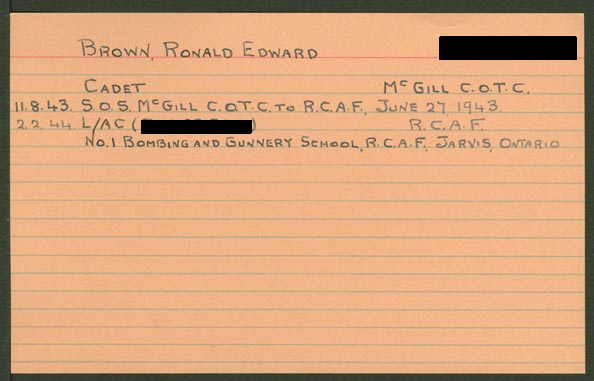 BROWN, RONALD EDWARD
CADET McGILL C.O.T.C.
11.8.43. S.O.S. McGILL C.O.T.C. TO R.C.A.F., JUNE 27, 1943.
2.2.44. L/AC ( ) R.C.A.F.
No.1 BOMBING AND GUNNERY SCHOOL, R.C.A.F. JARVIS, ONTARIO